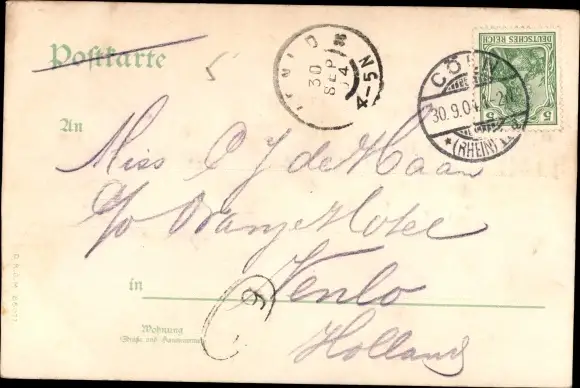 Postkarte
DEUTSCHES REICH
5
VENLO
30
SEP
04
4-5N
CÖLN
30.9.04
*(RHEIN)
An
Miss C J de Haan
c/o Oranje Hotel
in Venlo
Wohnung
(Straße und Hausnummer)
Holland
9